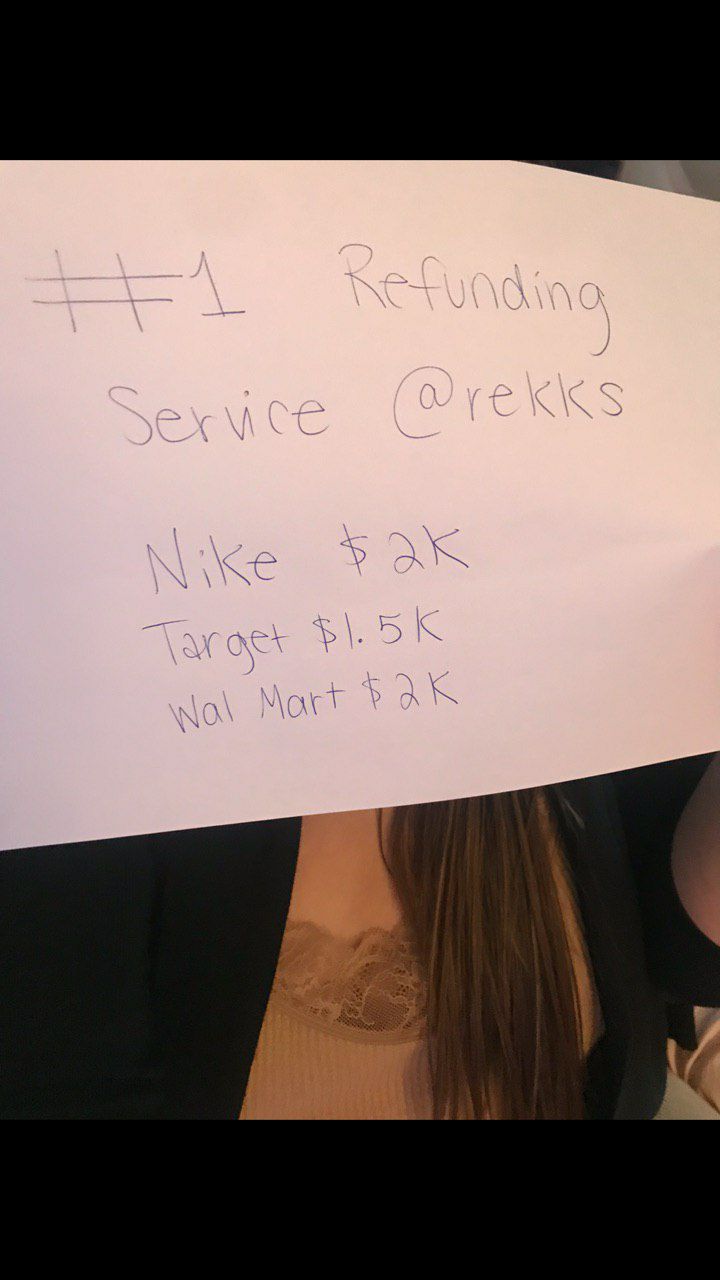 #1 Refunding
Service @rekks
Nike $2K
Target $1.5K
Wal Mart $2K